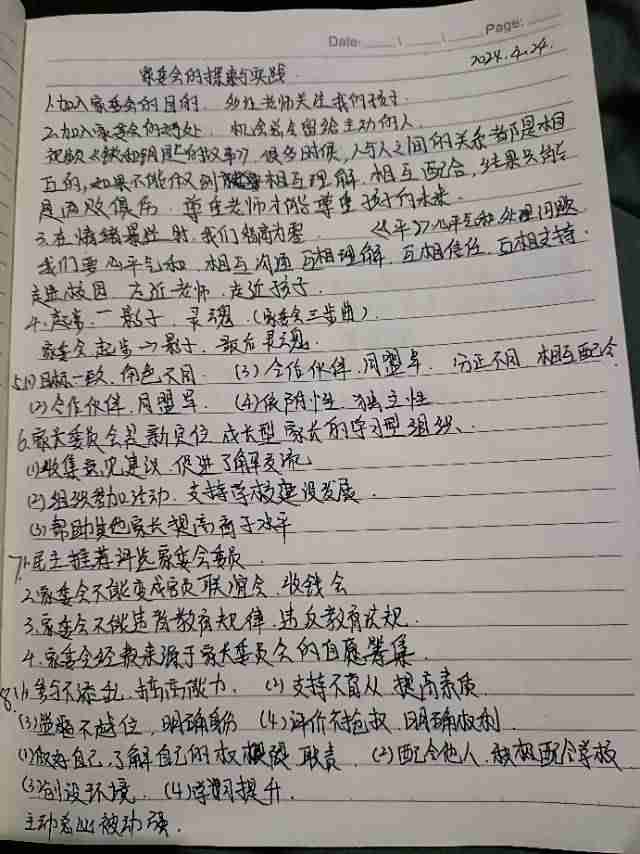 Date: \ \ Page:
家委会的探索与实践.
2024.4.24.
1.加入家委会的目的. 多让老师关注我们孩子.
2.加入家委会的好处. 机会总会留给主动的人.
视频《锁和钥匙的故事》, 很多时候,人与人之间的关系都是相
互的,如果不能做到相互理解. 相互配合, 结果只能
是两败俱伤. 尊重老师才能尊重孩子的未来.
3.在情绪 时. 我们 《平》心平气和处理问题
我们要心平气和 相互沟通 互相理解. 互相信任. 互相支持.
走进校园 走近老师. 走近孩子.
4.起步. 一 影子 灵魂. (家委会三步曲).
家委会起步→影子. 最后灵魂.
5.(1)目标一致. 角色不同. (3)合作伙伴. 同盟军. 分工不同 相互配合.
(2)合作伙伴. 同盟军. (4)依附性. 独立性
6.家长委员会是新定位 成长型家长的学习型组织.
(1)收集意见建议. 促进了解交流
(2)组织参加活动. 支持学校建设发展.
(3)帮助其他家长提高 水平
7.1.民主推荐评选家委会委员
2.家委会不能变成官员联谊会. 收钱会
3.家委会不能违背教育规律. 违反教育法规.
4.家委会经费来源于家长委员会的自愿筹集.
8.(1)参与不添乱. 提高能力. (2)支持不盲从 提高素质.
(3) 不越位, 明确身份 (4)评价不 权. 明确权利.
(1)做好自己,了解自己的权 职责. (2)配合他人. 积极配合学校
(3)创设环境. (4)学习提升.
主动总比被动强.